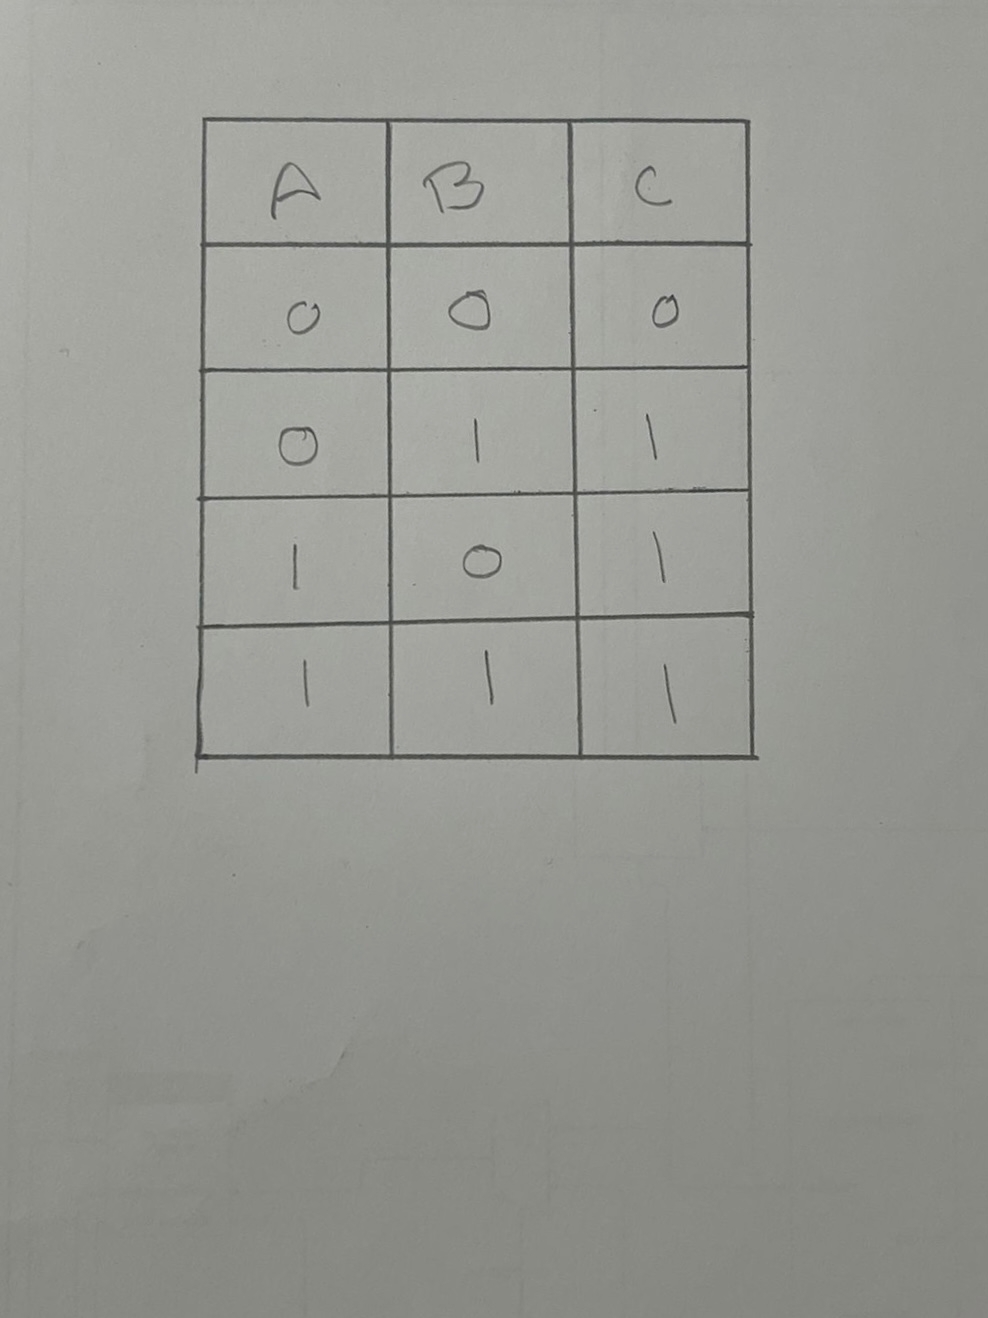 A B C
0 0 0
0 1 1
1 0 1
1 1 1